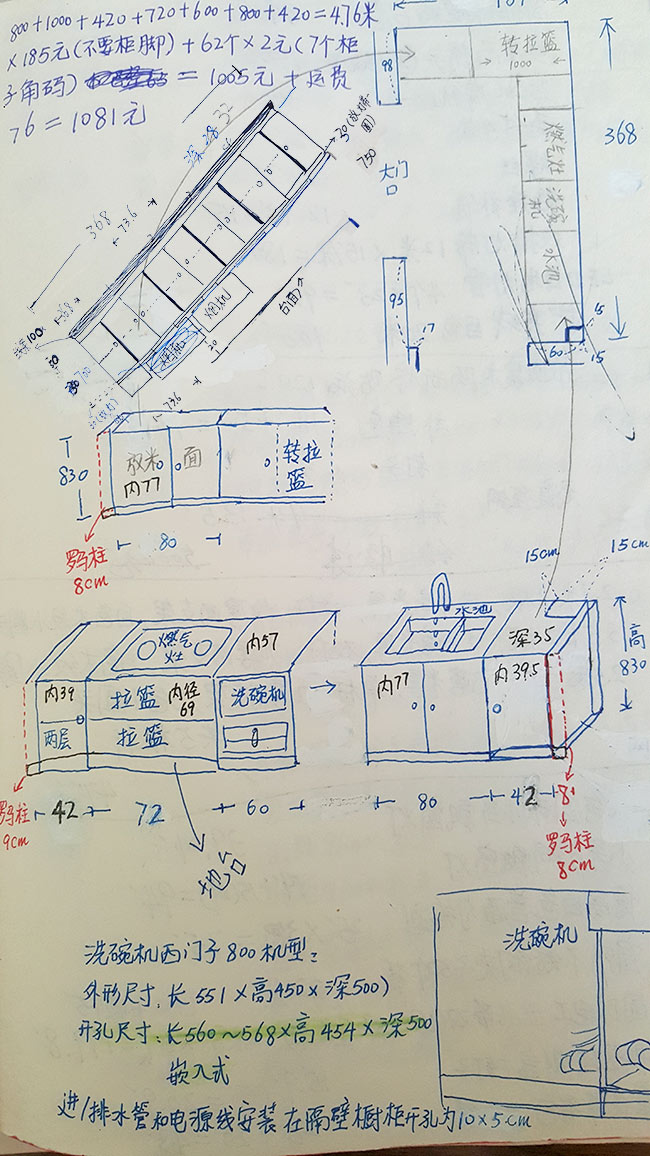 800+1000+420+720+600+800+420=4.76米
×185元(不要柜脚)+62个×2元(7个柜
子角码) = 1005元+运费
76=1081元
98
转拉篮
1000
368
燃气灶
洗碗机
水池
大门
口
95
17
15
60
15
深28
32
30
750
368
736
台面
736
830
放米
内77
面
转拉
篮
80
罗马柱
8cm
15cm
15cm
燃气
灶
内57
水池
深35
高
830
内39
拉篮
内径
69
洗碗机
内77
内39.5
两层
拉篮
罗马柱
9cm
42
72
60
80
42
8
罗马柱
8cm
地台
洗碗机西门子800机型:
外形尺寸:长551×高450×深500)
开孔尺寸:长560~568×高454×深500
嵌入式
进/排水管和电源线安装在隔壁橱柜开孔为10×5cm
洗碗机